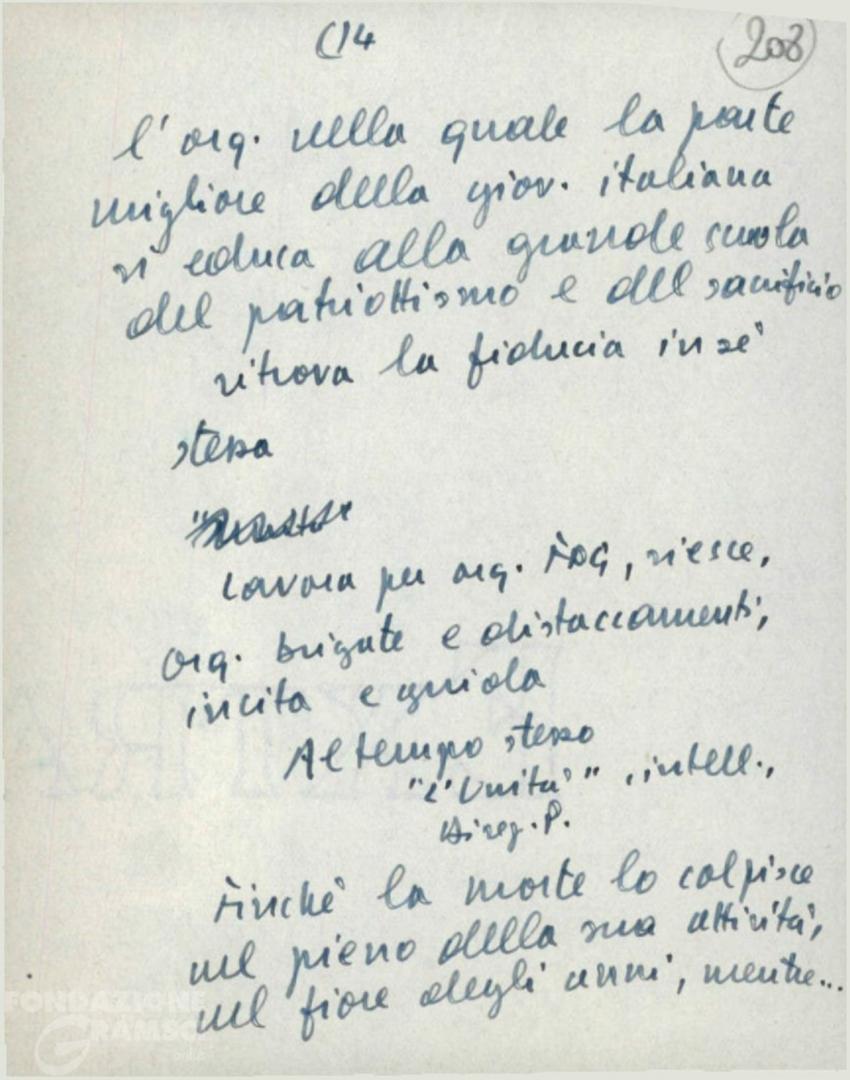 (14
208
l'org. nella quale la parte
migliore della giov. italiana
si educa alla grande scuola
del patriottismo e del sacrificio
ritrova la fiducia in sé
stessa
Lavora per org. FdG, riesce,
org. brigate e distaccamenti,
incita e guida
Al tempo stesso
"L'Unità", intell.,
Direz. P.
Finché la morte lo colpisce
nel pieno della sua attività,
nel fiore degli anni, mentre...
FONDAZIONE
GRAMSCI